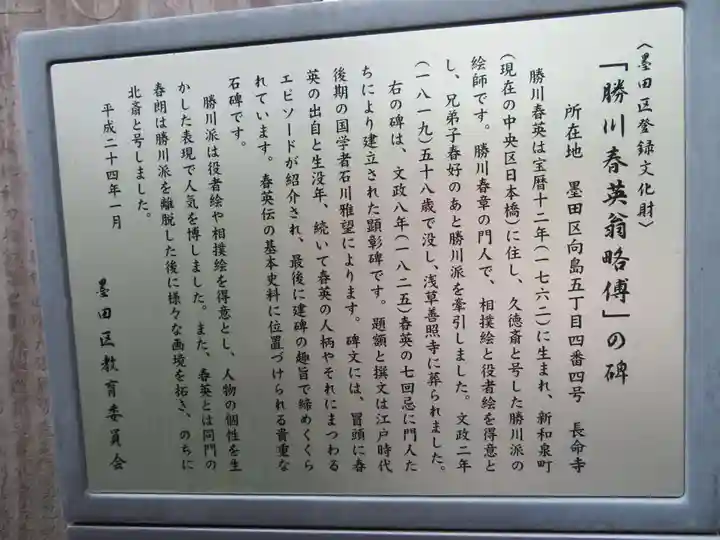 〈墨田区登録文化財〉
「勝川春英翁略傳」の碑
所在地　墨田区向島五丁目四番四号　長命寺
勝川春英は宝暦十二年(一七六二)に生まれ、新和泉町
(現在の中央区日本橋)に住し、久徳斎と号した勝川派の
絵師です。勝川春章の門人で、相撲絵と役者絵を得意と
し、兄弟子春好のあと勝川派を牽引しました。文政二年
(一八一九)五十八歳で没し、浅草善照寺に葬られました。
右の碑は、文政八年(一八二五)春英の七回忌に門人た
ちにより建立された顕彰碑です。題額と撰文は江戸時代
後期の国学者石川雅望によります。碑文には、冒頭に春
英の出自と生没年、続いて春英の人柄やそれにまつわる
エピソードが紹介され、最後に建碑の趣旨で締めくくら
れています。春英伝の基本史料に位置づけられる貴重な
石碑です。
勝川派は役者絵や相撲絵を得意とし、人物の個性を生
かした表現で人気を博しました。また、春英とは同門の
春朗は勝川派を離脱した後に様々な画境を拓き、のちに
北斎と号しました。
平成二十四年一月
墨田区教育委員会